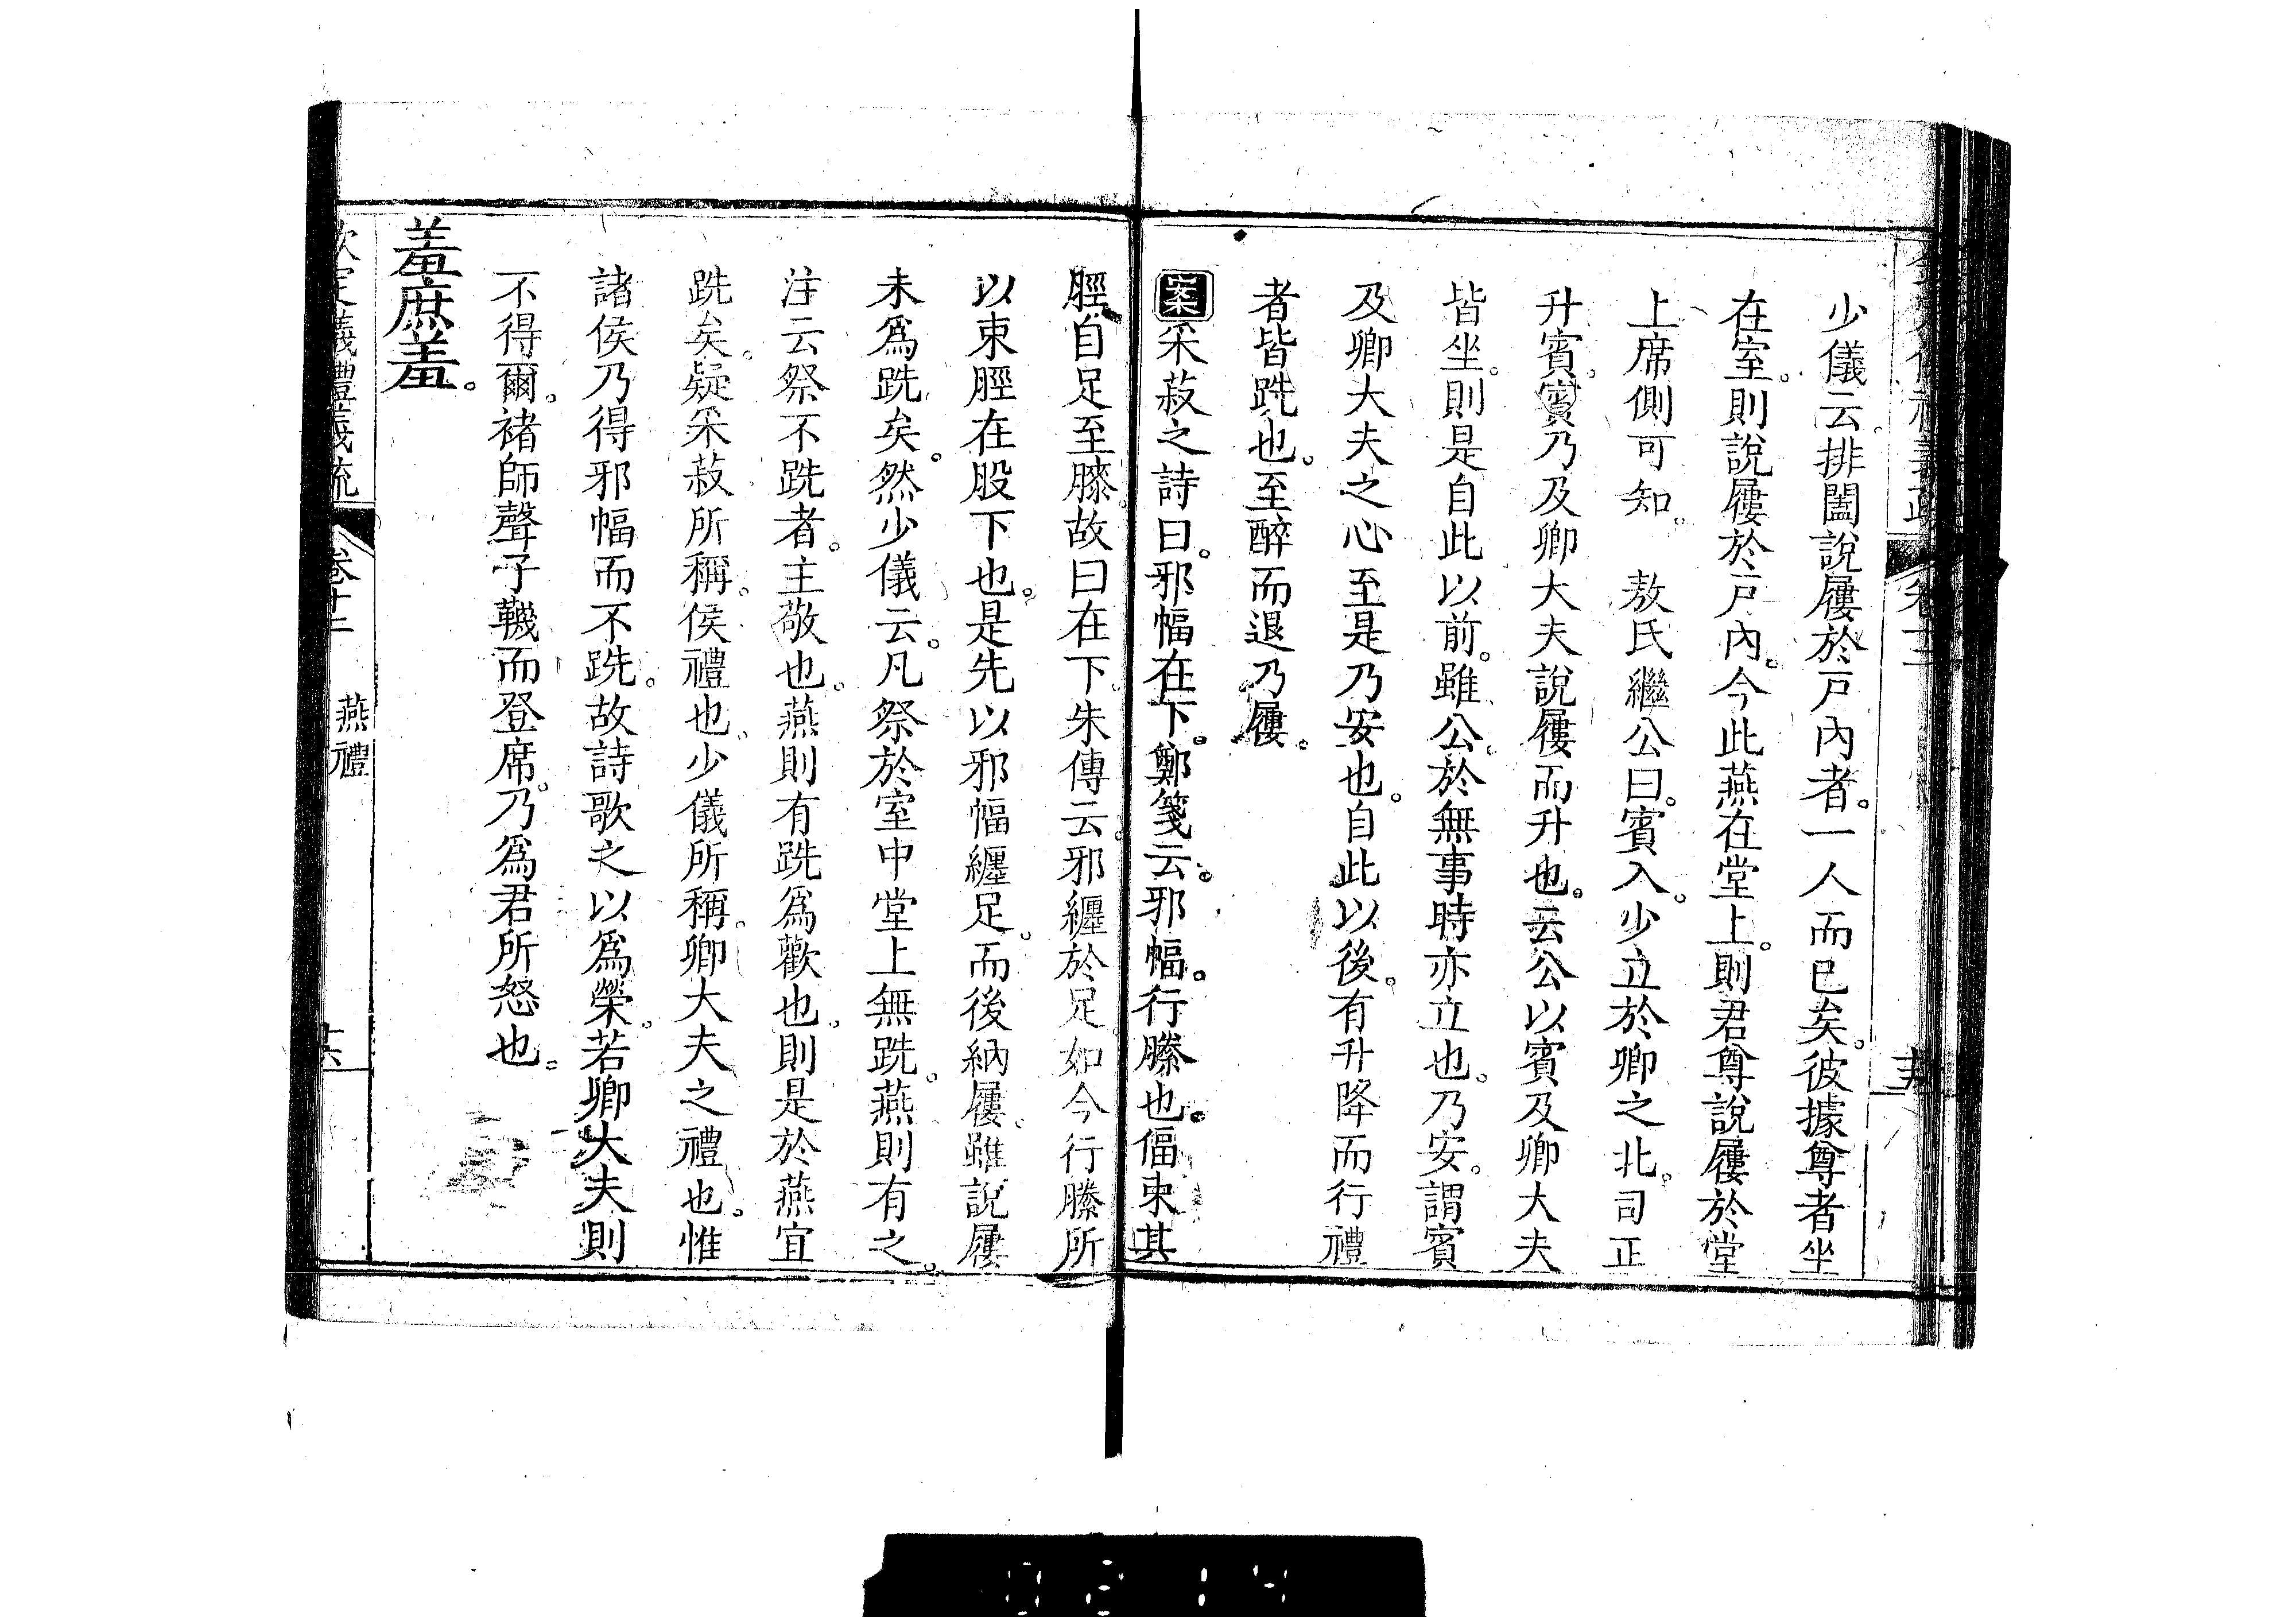 少儀云排闔說屨於戸內者。一人而已矣。彼據尊者坐
在室。則說屨於戸內。今此燕在堂上。則君尊說屨於堂
上席側可知。　敖氏繼公曰。賓入。少立於卿之北。司正
升賓。賓乃及卿大夫說屨而升也。云公以賓及卿大夫
皆坐。則是自此以前。雖公於無事時亦立也。乃安。謂賓
及卿大夫之心至是乃安也。自此以後。有升降而行禮
者皆跣也。至醉而退乃屨。
案采菽之詩曰。邪幅在下。鄭箋云。邪幅。行縢也。偪束其
脛自足至膝。故曰在下。朱傳云。邪纏於足如今行縢所
以束脛在股下也。是先以邪幅纏足。而後納屨。雖說屨
未爲跣矣。然少儀云。凡祭於室中堂上無跣。燕則有之。
注云祭不跣者。主敬也。燕則有跣爲歡也。則是於燕宜
跣矣。疑采菽所稱。侯禮也。少儀所稱。卿大夫之禮也。惟
諸侯乃得邪幅而不跣。故詩歌之以爲榮。若卿大夫則
不得爾。褚師聲子韈而登席。乃爲君所怒也。
羞庶羞。
欽定儀禮義疏　卷十二　燕禮　十六